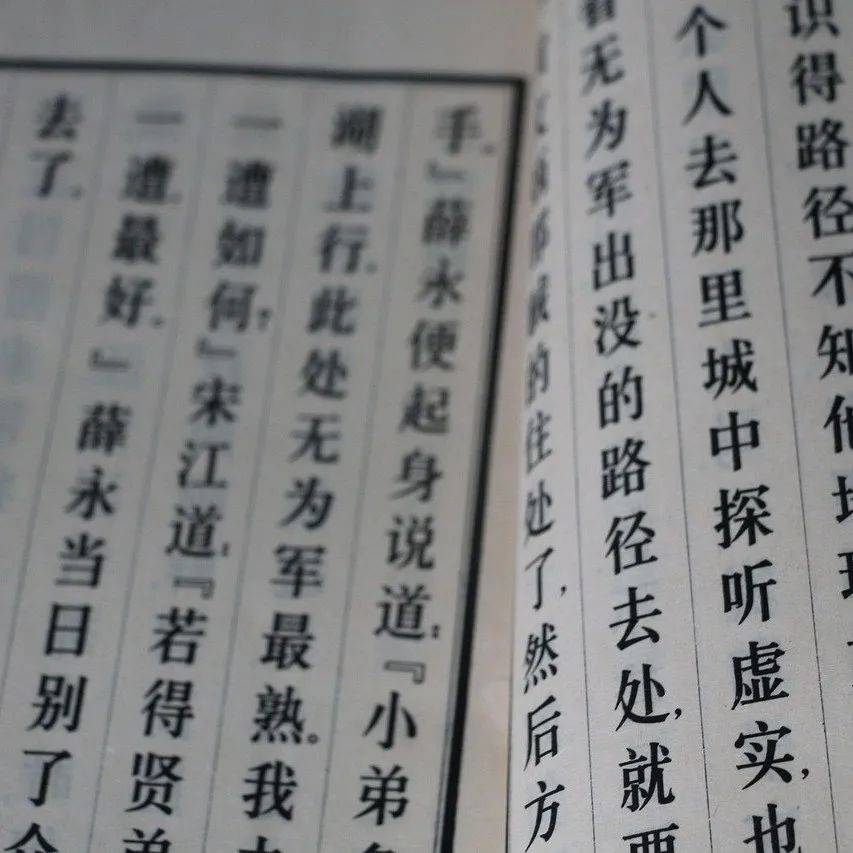 识得路径不知他地理
个人去那里城中探听虚实,也
看无为军出没的路径去处,就要
那贼的住处了,然后方
手。』薛永便起身说道:『小弟
湖上行。此处无为军最熟。我
一遭如何?』宋江道:『若得贤弟
一遭最好。』薛永当日别了众
去了。